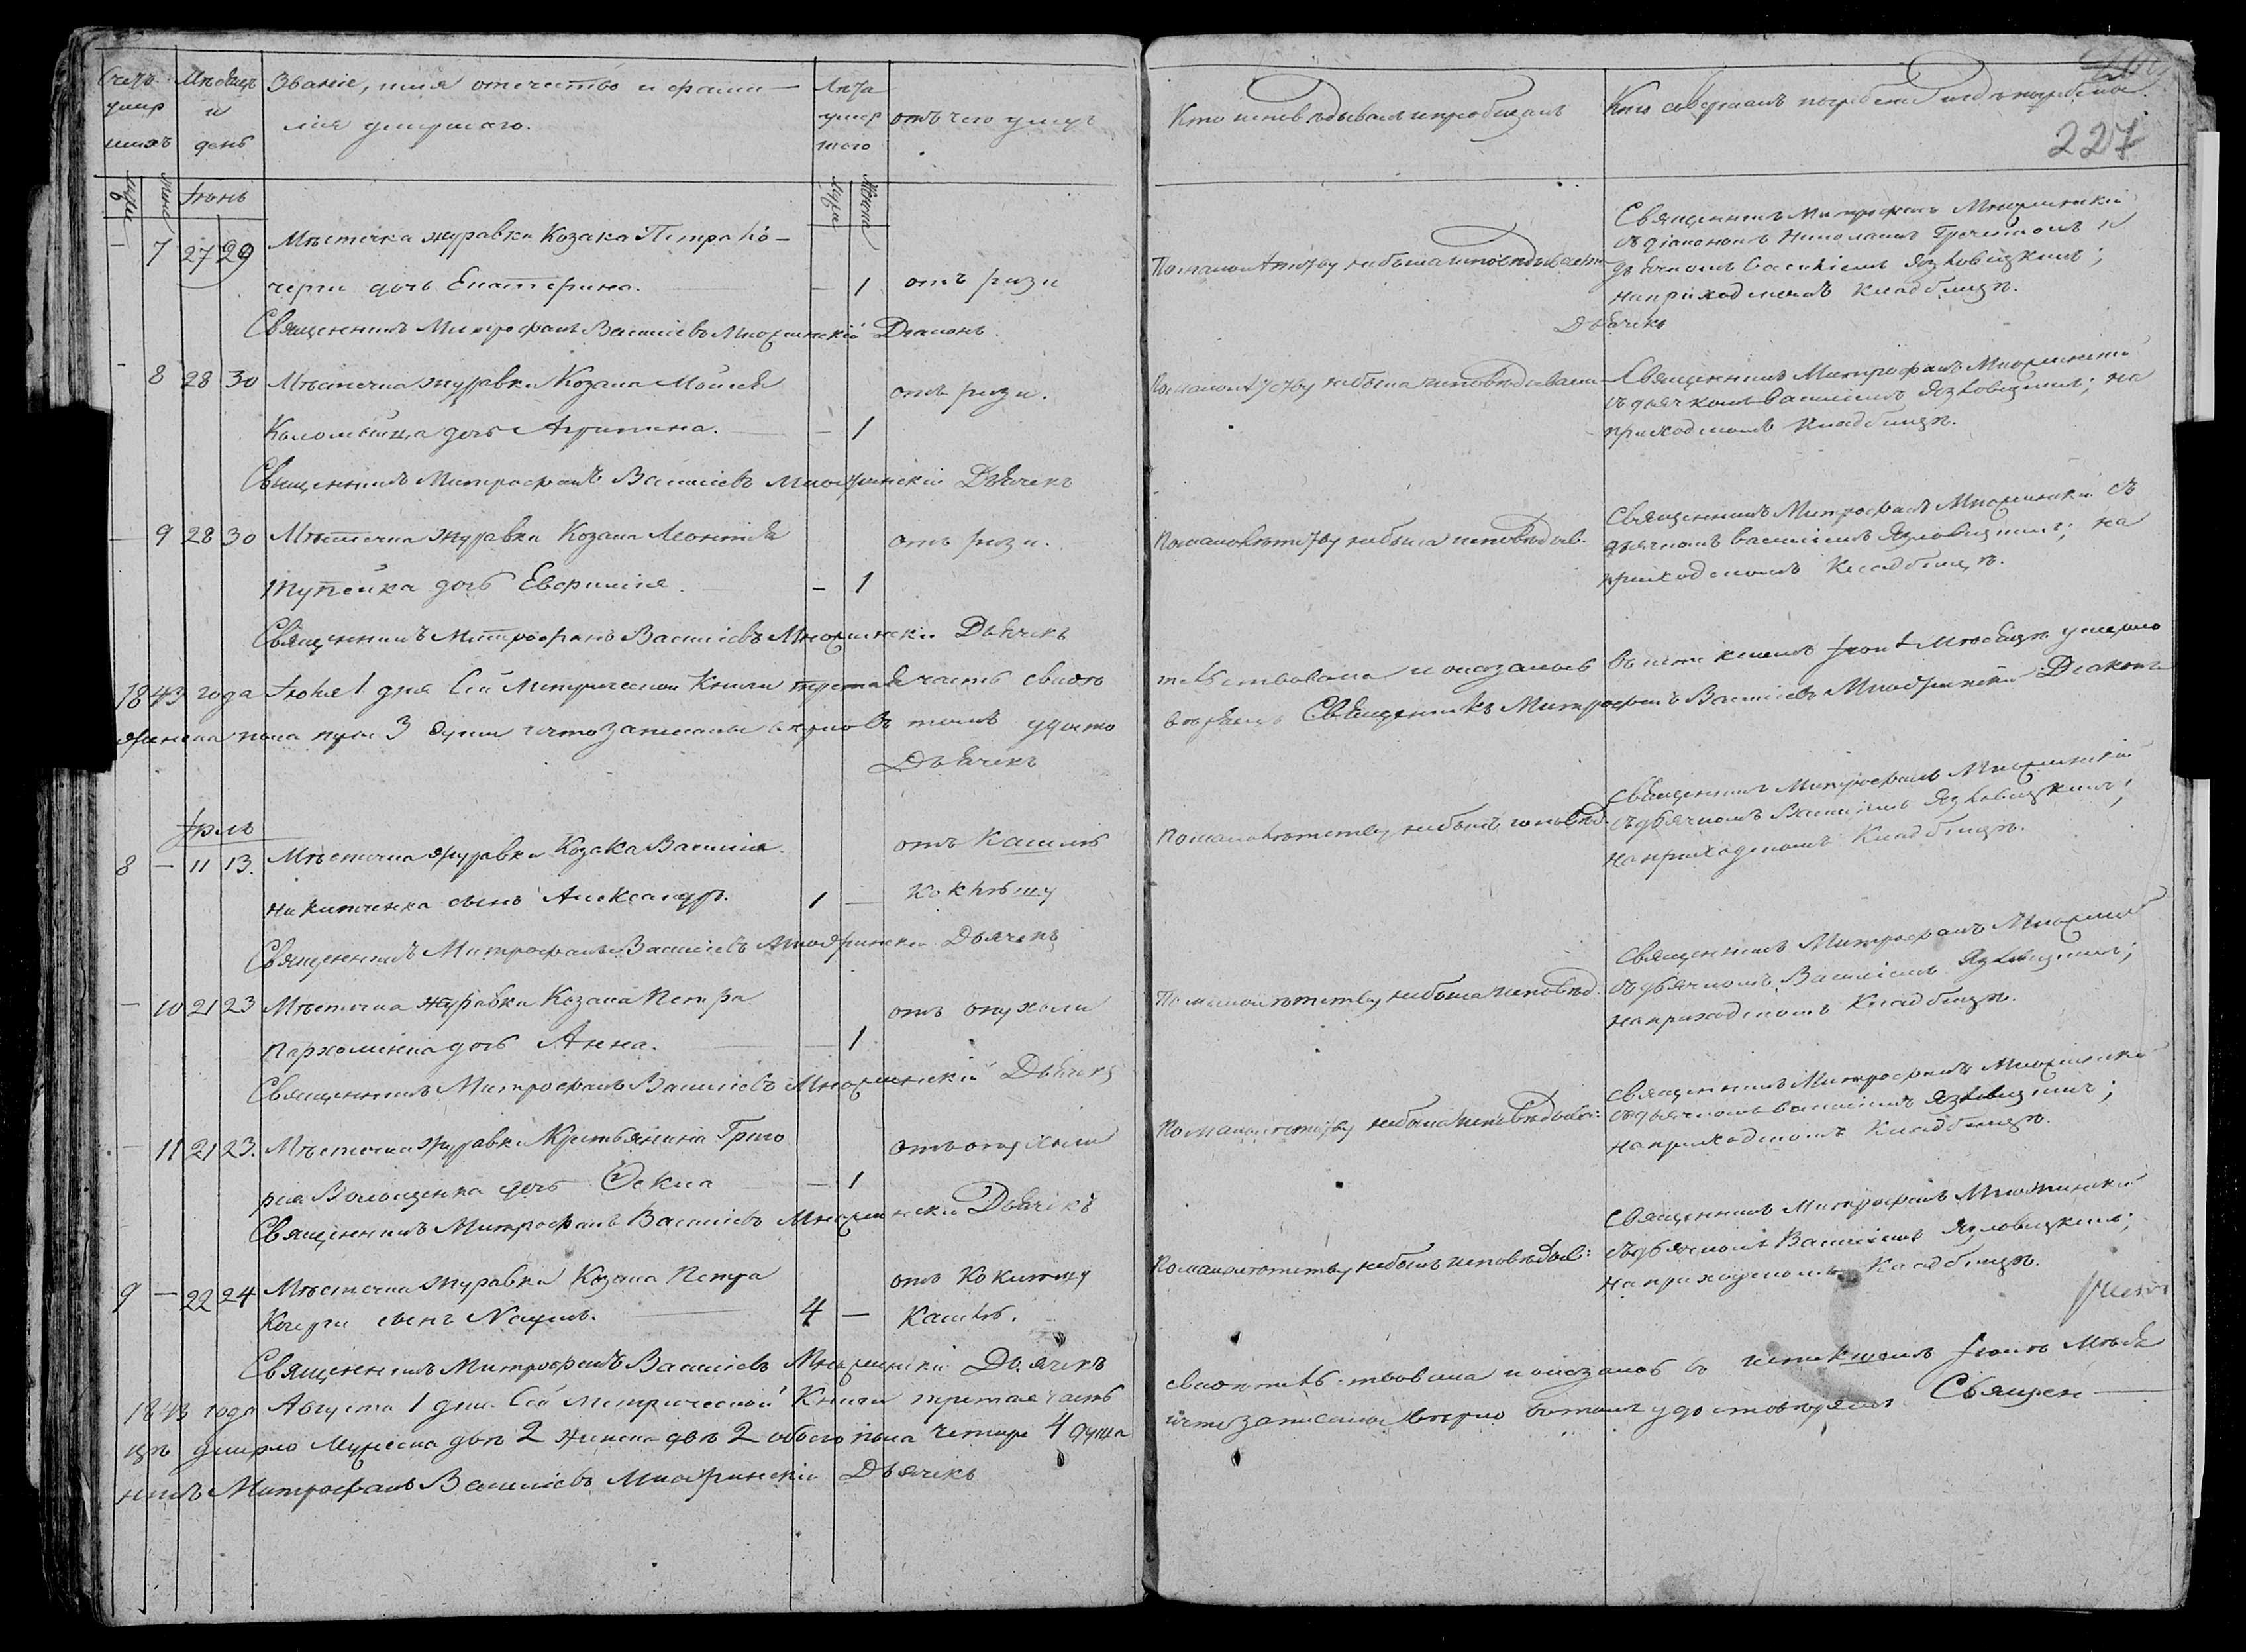 Счетъ умершихъ
Мѣсяцъ и день
Званіе, имя отечество и фами-
лія умершаго.
Лѣта умершаго
отъ чего умеръ
Кто исповѣдывалъ и пріобщалъ
Кто совершалъ погребеніе и гдѣ погребены
227
Іюнь
- 7 27 29 Мѣстечка Журавки Козака Петра Ко-
черги дочь Екатерина. - 1 отъ рези
По малолѣтству небыла исповѣдывана
Священникъ Митрофанъ
съ діакономъ Николаемъ и
дьячкомъ Василіемъ Язловицкимъ;
на приходскомъ Кладбищѣ.
Священникъ Митрофанъ Василіевъ Діаконъ Дьячекъ
- 8 28 30 Мѣстечка Журавки Козака Моисея отъ рези.
Коломійца дочь Агрипина. - 1
По малолѣтству небыла исповѣдывана
Священникъ Митрофанъ
съ дьячкомъ Василіемъ Язловицкимъ; на
приходскомъ Кладбищѣ.
Священникъ Митрофанъ Василіевъ Дьячекъ
- 9 28 30 Мѣстечка Журавки Козака Леонтія отъ рези.
дочь Евфимія. - 1
По малолѣтству небыла исповѣдыв.
Священникъ Митрофанъ съ
дьячкомъ Василіемъ Язловицкимъ; на
приходскомъ Кладбищѣ.
Священникъ Митрофанъ Василіевъ Дьячекъ
1843 года Іюля 1 дня Сей Метрической Книги третая часть свидѣ
тельствована и оказалось въ истекшемъ Іюнѣ Мѣсяцѣ умерло
женска пола три 3 души что записаны вѣрно въ томъ удосто
вѣряемъ Священникъ Митрофанъ Василіевъ Діаконъ
Дьячекъ
Іюль
8 - 11 13. Мѣстечка Журавки Козака Василія отъ Кашлю
Никитченка сынъ Александръ. 1 - Коклюшу
По малолѣтству небылъ исповѣд.
Священникъ Митрофанъ
съ дьячкомъ Василіемъ Язловицкимъ;
на приходскомъ Кладбищѣ.
Священникъ Митрофанъ Василіевъ Дьячекъ
- 10 21 23 Мѣстечка Журавки Козака Петра отъ опухоли
Пархоменка дочь Анна. - 1
По малолѣтству небыла исповѣд.
Священникъ Митрофанъ
съ дьячкомъ Василіемъ Язловицкимъ;
на приходскомъ Кладбищѣ.
Священникъ Митрофанъ Василіевъ Дьячекъ
- 11 21 23. Мѣстечка Журавки Крестьянина Григо отъ опухоли
рія Волощенка дочь Ѳекла - 1
По малолѣтству небыла исповѣдыв:
Священникъ Митрофанъ
съ дьячкомъ Василіемъ Язловицкимъ;
на приходскомъ Кладбищѣ.
Священникъ Митрофанъ Василіевъ Дьячекъ
9 - 22 24 Мѣстечка Журавки Козака Петра отъ Коклюшу
Кочерги сынъ Наумъ. 4 - Кашлю.
По малолѣтству небылъ исповѣдыв:
Священникъ Митрофанъ
съ дьячкомъ Василіемъ Язловицкимъ;
на приходскомъ Кладбищѣ.
Священникъ Митрофанъ Василіевъ Дьячекъ
1843 года Августа 1 дня Сей Метрической Книги третая часть
свидѣтельствована и оказалось въ истекшемъ Іюлѣ Мѣся
цѣ умерло Мужеска двѣ 2 женска двѣ 2 обоего пола четыре 4 душы
что записаны вѣрно въ томъ удостовѣряемъ Священ-
никъ Митрофанъ Василіевъ Дьячекъ